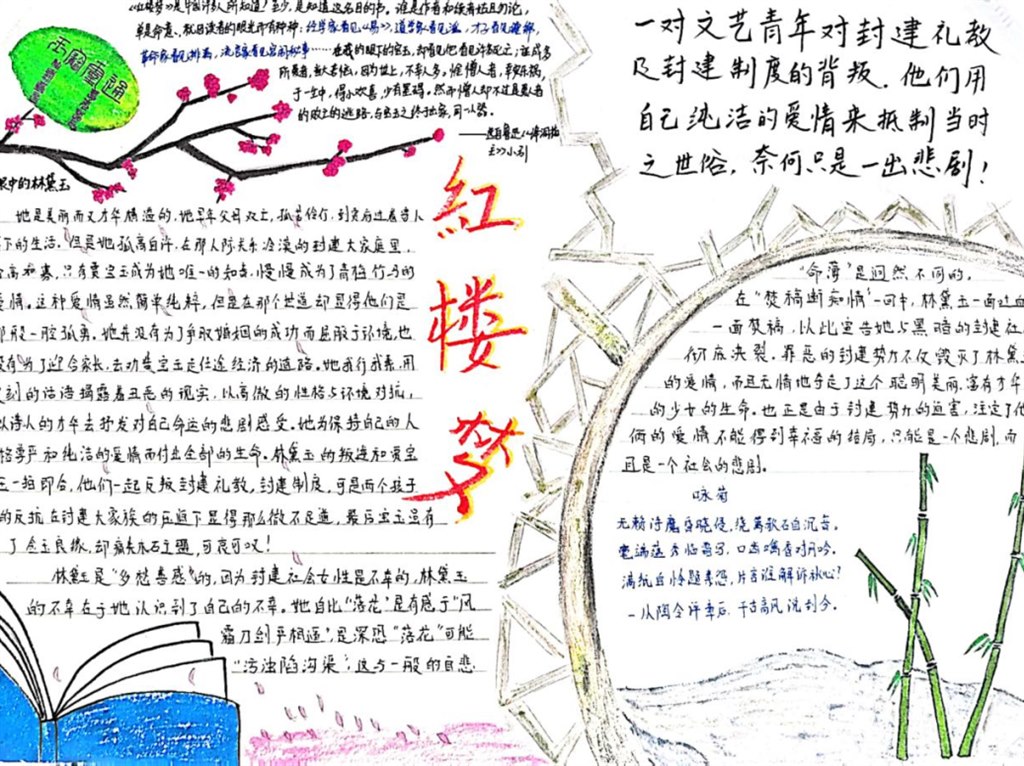 《红楼梦》是中国许多人所知道,至少,是知道这名目的书。谁是作者和续者姑且勿论,
单是命意,就因读者的眼光而有种种:经学家看见《易》,道学家看见淫,才子看见缠绵,
革命家看见排满,流言家看见宫闱秘事……在我的眼下的宝玉,却看见他看见许多死亡;证成多
所爱者,当大苦恼,因为世上,不幸人多。惟憎人者,幸灾乐祸,
于一生中,得小欢喜,少有罣碍。然而憎人却不过是爱人者
的败亡的逃路,与宝玉之终于出家,同一小器。
眼中的林黛玉
她是美丽而又才华横溢的,她早年父母双亡,孤苦伶仃,到贾府过着寄人
下的生活。但是她孤高自许,在那人际关系冷漠的封建大家庭里,
高和寡,只有贾宝玉成为她唯一的知音,慢慢成为了青梅竹马的
爱情。这种爱情虽然简单纯粹,但是在那个世道却显得他们是
那般一腔孤勇。她并没有为了争取婚姻的成功而屈服于环境,也
没有为了迎合家长,去劝贾宝玉走仕途经济的道路。她我行我素,用
刻的话语揭露着丑恶的现实,以高傲的性格与环境对抗,
以诗人的才华去抒发对自己命运的悲剧感受。她为保持自己的人
格尊严和纯洁的爱情而付出全部的生命。林黛玉的叛逆和贾宝
玉一拍即合,他们一起反叛封建礼教,封建制度,可是两个孩子
的反抗在封建大家族的压迫下显得那么微不足道,最后宝玉虽有
了金玉良缘,却痛失木石之盟,可哀可叹!
林黛玉是“多愁善感”的,因为封建社会女性是不幸的,林黛玉
的不幸在于她认识到了自己的不幸。她自比“落花”是有感于“风
霜刀剑严相逼”,是深恐“落花”可能
“污浊陷沟渠”,这与一般的自悲
紅
楼
梦
一对文艺青年对封建礼教
及封建制度的背叛.他们用
自己纯洁的爱情来抵制当时
之世俗,奈何只是一出悲剧!
“命薄”是迥然不同的,
在“焚稿断痴情”一回中,林黛玉一面吐血
一面焚稿,以此宣告她与黑暗的封建社
彻底决裂。罪恶的封建势力不仅毁灭了林黛玉
的爱情,而且无情地夺走了这个聪明美丽,富有才华
的少女的生命。也正是由于封建势力的迫害,注定了他
俩的爱情不能得到幸福的结局,只能是一个悲剧,而
且是一个社会的悲剧。
咏菊
无赖诗魔昏晓侵,绕篱欹石自沉音。
毫端蕴秀临霜写,口齿噙香对月吟。
满纸自怜题素怨,片言谁解诉秋心?
一从陶令评章后,千古高风说到今。